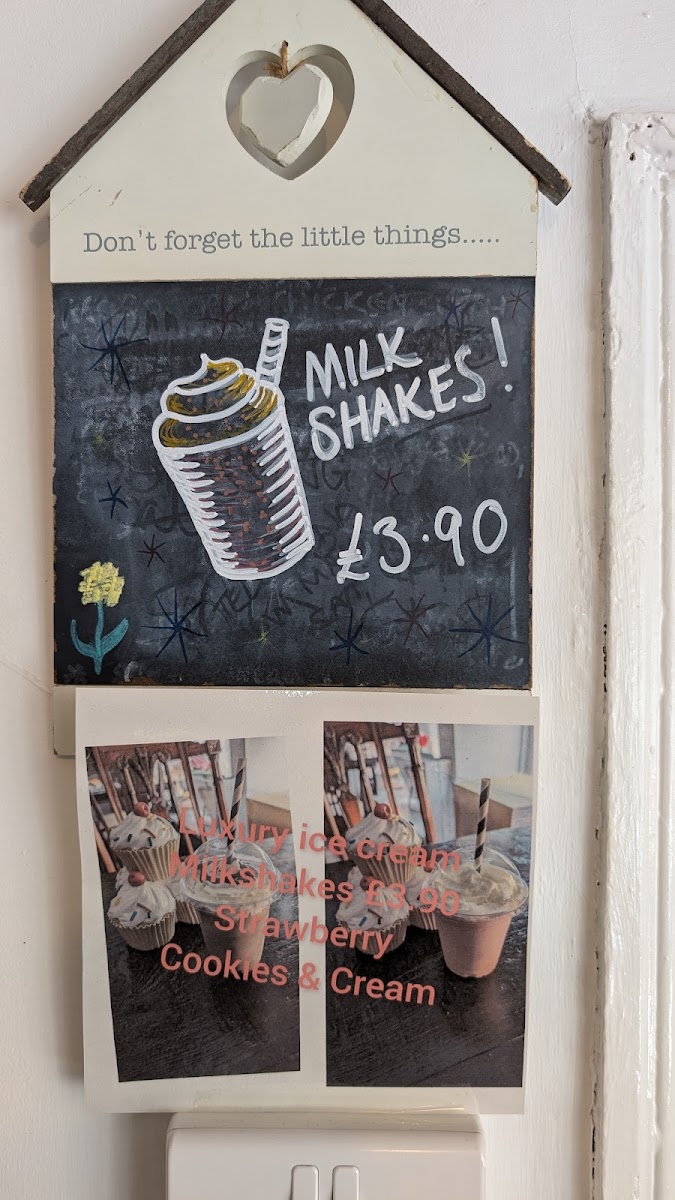 Don't forget the little things.....
MILK
SHAKES!
£3.90
Luxury ice cream
Milkshakes £3.90
Strawberry
Cookies & Cream